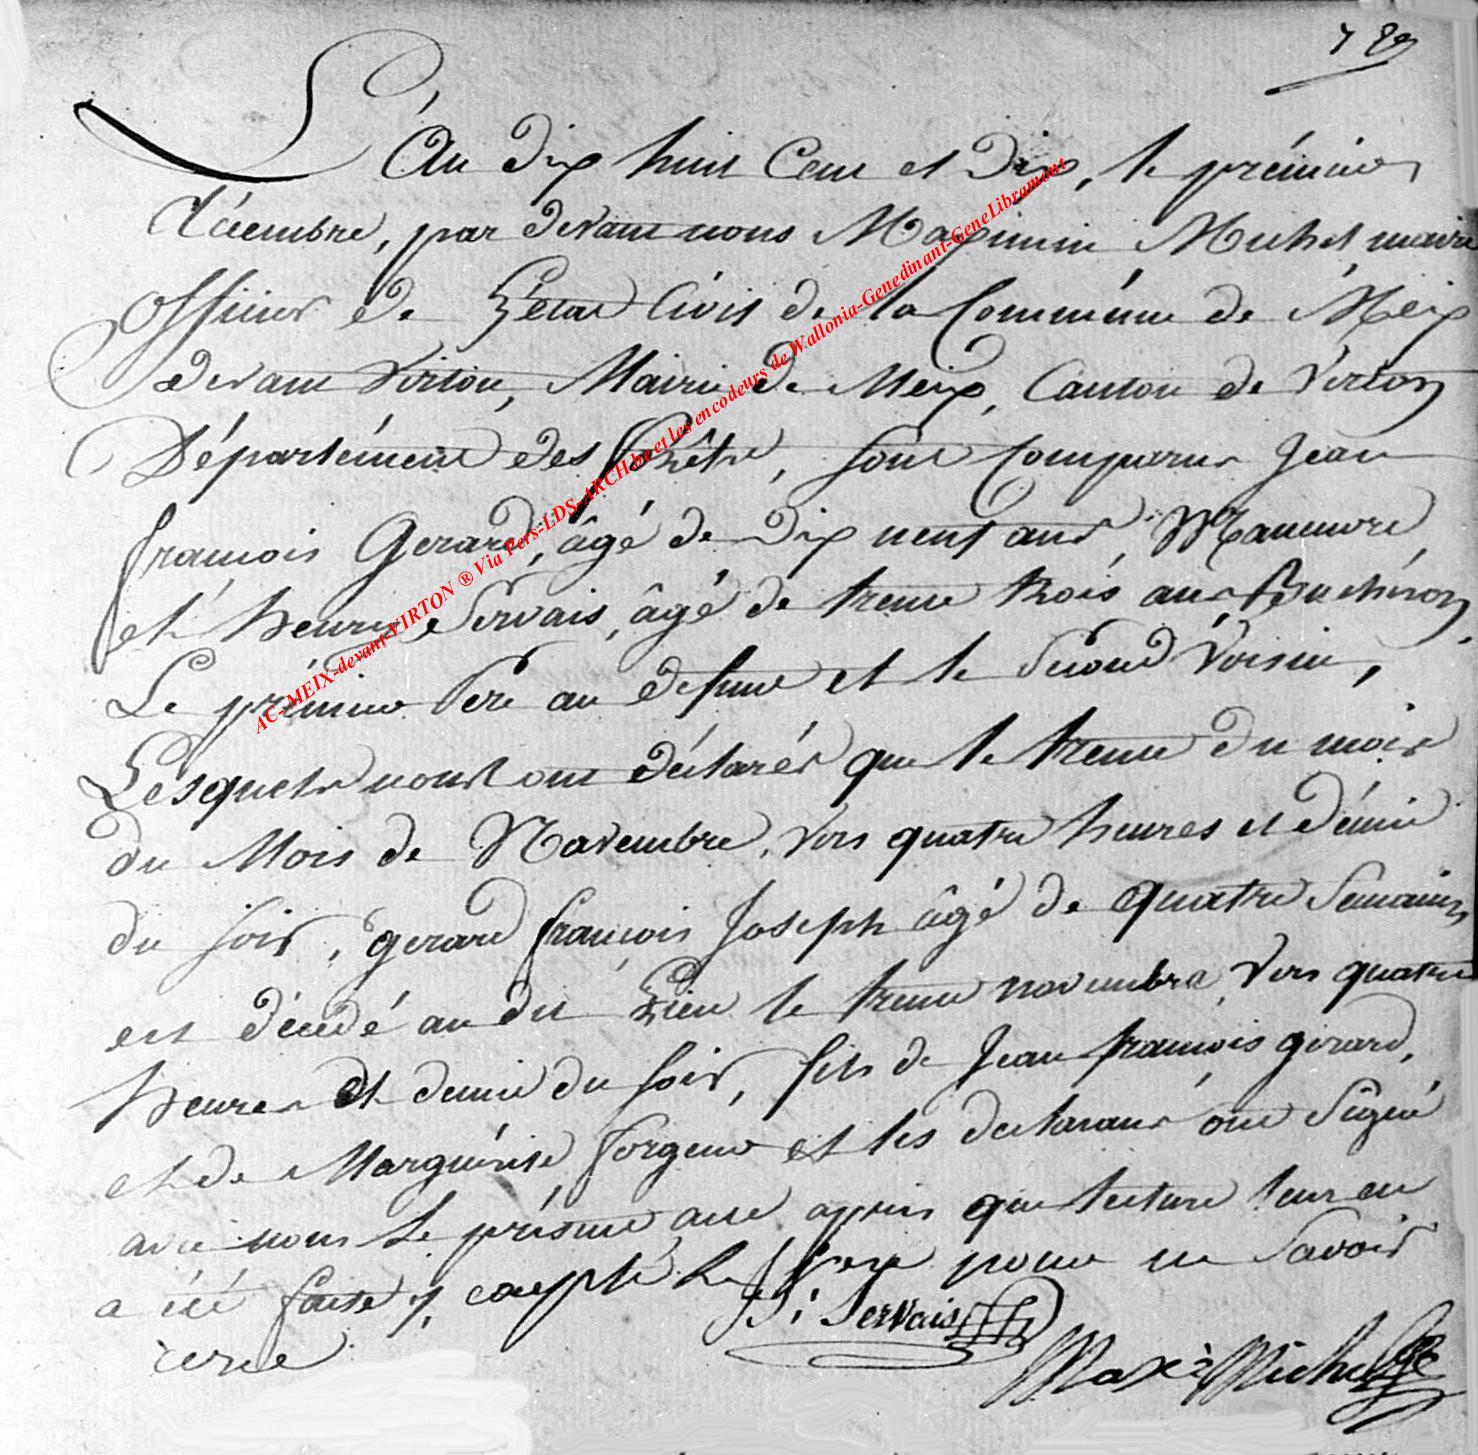 L'An dix huit Cent et Dix, le prémier
Décembre, par devant nous Maximin Michel, maire
Officier de L'état Civil de la Commune de Meix
devant Virton, Mairie de Meix, Canton de Virton
Département des Forêts, sont comparus Jean
françois Gerard, âgé de dix neuf ans, Maneuvre,
et henry Servais, âgé de trente trois ans Buchéron,
Le prémier Pere au defunt et le second Voisin,
Lesquels nous ont déclarés que le trente du mois
du Mois de Novembre, vers quatre heures et démie
du soir, gerard françois Joseph âgé de quatre Semaines
est décédé au dit Lieu le trente novembre vers quatre
heures et demie du soir, fils de Jean françois gerard,
et de Marguérite forgeur et les declarans ont Signé
avec nous le présent acte après que lecture leur en
a été faite, excepté le Pere pour ne savoir
écrire
H: Servais
Max: Michel
AC-MEIX-devant-VIRTON ® Via Pers-LDS-ARCH.be et les encodeurs de Wallonia-Genedinant-GeneLibramont